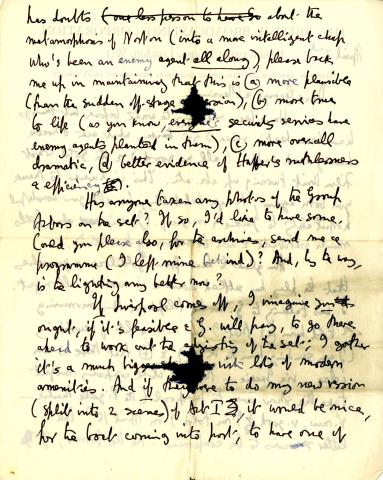 has doubts (our less person to have so) about the
metamorphosis of Norton (into a more intelligent chap
who's been an enemy agent all along), please back
me up in maintaining that this is (a) more plausible
(than the sudden off-stage), (b) more true
to life (as you know, everyone's security services have
enemy agents planted in them), (c) more overall
dramatic, (d) better evidence of Hopper's ruthlessness
& efficiency.
Has anyone taken any photos of the Group
on the set? If so, I'd like to have some.
Could you please also, for the archives, send me a
programme (I left mine behind)? And, by the way,
is the lighting any better now?
If Liverpool comes off, I imagine you
ought, if it's feasible & G. will pay, to go there
ahead to work out the of the set; I gather
it's a much with lots of modern
amenities. And if they were to do my new version
(split into 2 scenes) of Act I, it would be nice,
for the boat coming into port, to have one of